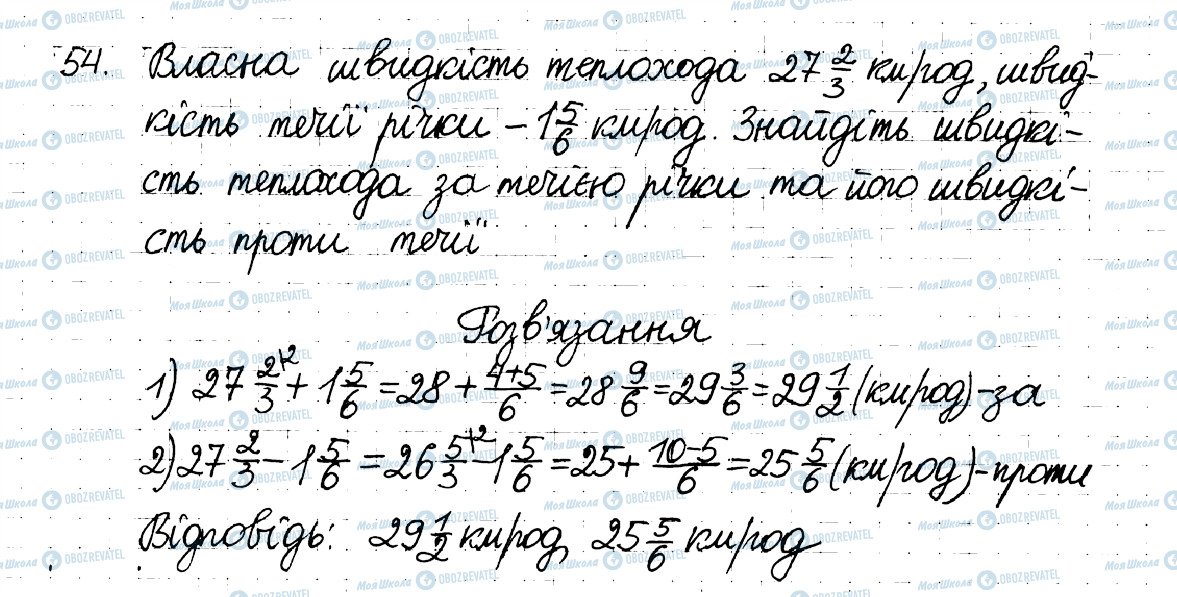 54. Власна швидкість теплохода 27 2/3 км/год, швид-
кість течії річки – 1 5/6 км/год. Знайдіть швидкі-
сть теплохода за течією річки та його швидкі-
сть проти течії
Розв'язання
1) 27 2/3 ^(·2) + 1 5/6 = 28 + (4+5)/6 = 28 9/6 = 29 3/6 = 29 1/2 (км/год) – за
2) 27 2/3 – 1 5/6 = 26 5/3 ^(·2) – 1 5/6 = 25 + (10–5)/6 = 25 5/6 (км/год) – проти
Відповідь: 29 1/2 км/год, 25 5/6 км/год